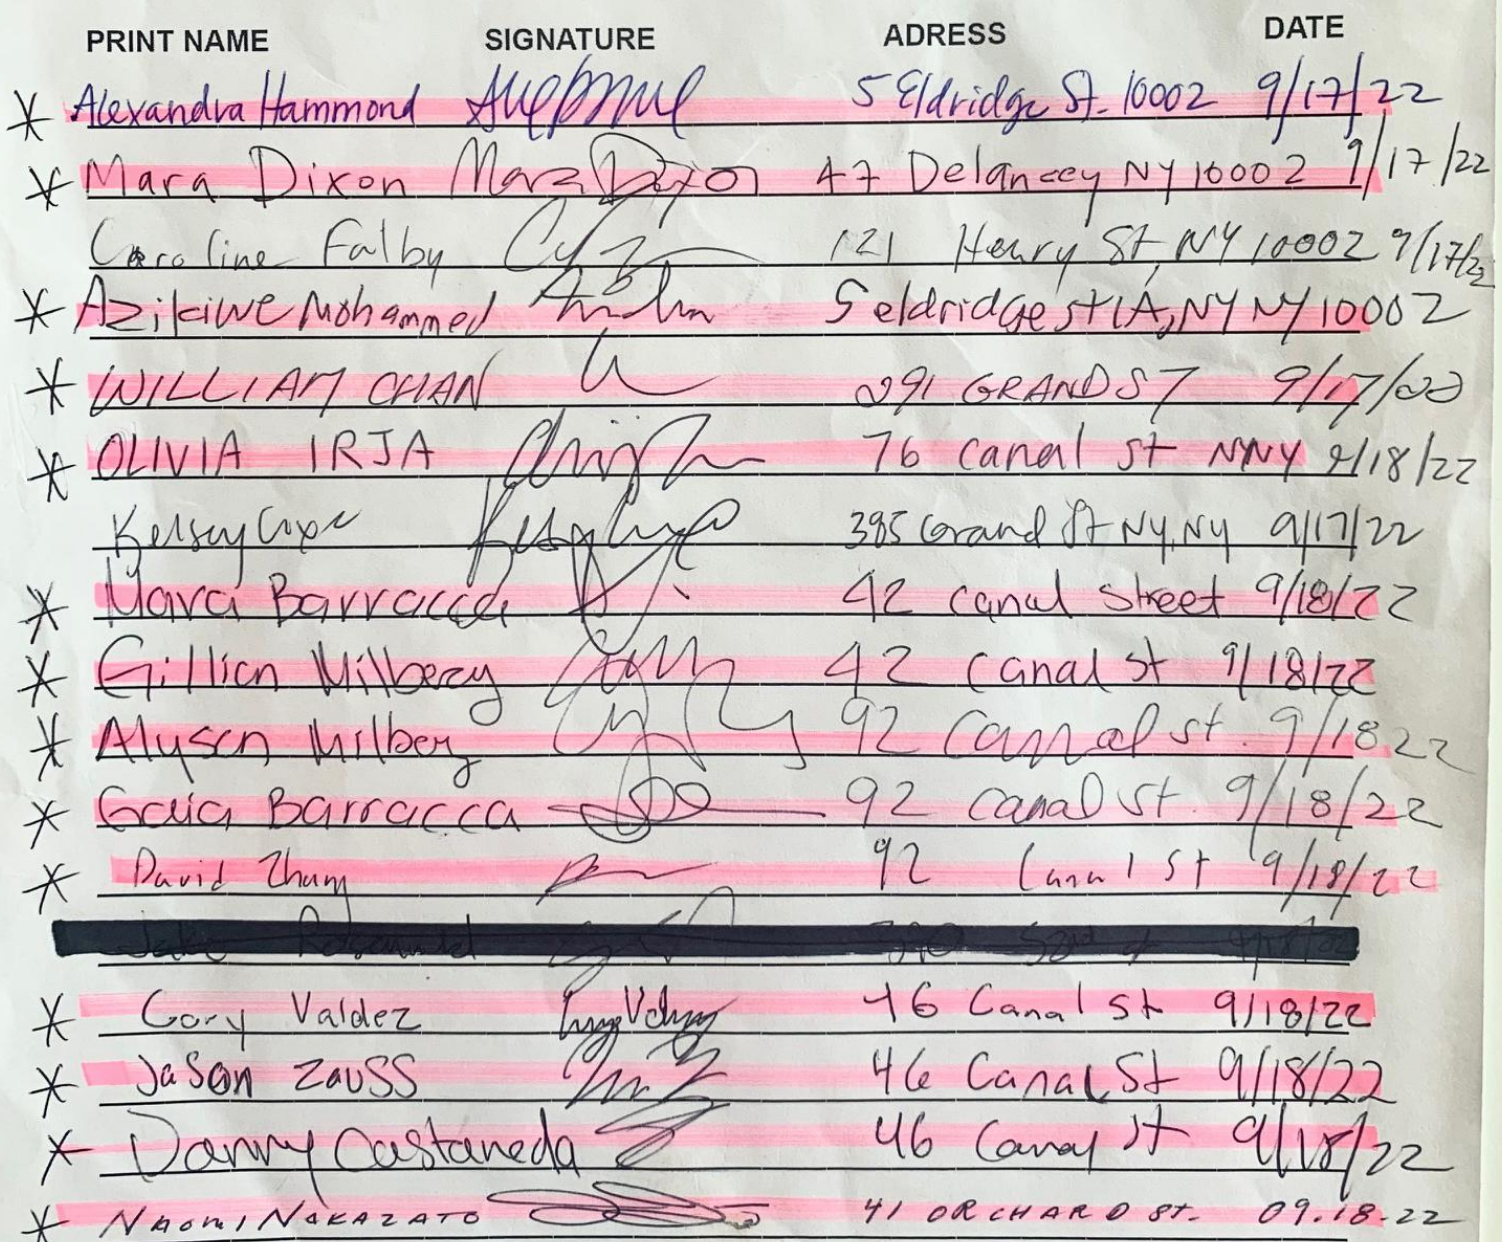 PRINT NAME SIGNATURE ADRESS DATE
* Alexandra Hammond 5 Eldridge St. 10002 9/17/22
* Mara Dixon Mara Dixon 47 Delancey NY 10002 9/17/22
Caroline Falby 121 Henry St, NY 10002 9/17/22
* Azikiwe Mohammed 5 eldridge st 1A, NY NY 10002
* WILLIAM CHAN 291 GRAND ST 9/17/22
* OLIVIA IRJA 76 canal st NNY 9/18/22
Kelsey 385 Grand St NY, NY 9/17/22
* Mara Barracca 42 canal street 9/18/22
* Gillian Milberg 42 canal st 9/18/22
* Alyson Milberg 92 Cannal st. 9/18 22
* Gaia Barracca 92 canal st. 9/18/22
* David Zhang 92 Canal St 9/18/22
* Cory Valdez 46 Canal St 9/18/22
* Jason Zauss 46 Canal St 9/18/22
* Danny Castaneda 46 Canal St 9/18/22
* NAOMI NAKAZATO 41 ORCHARD St. 09.18.22